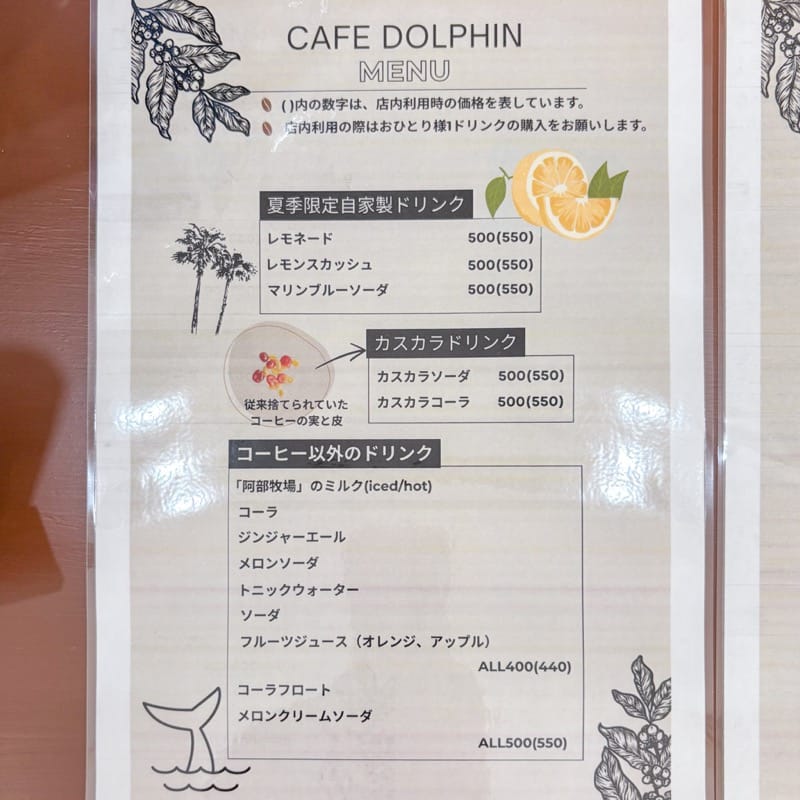 CAFE DOLPHIN
MENU
( )内の数字は、店内利用時の価格を表しています。
店内利用の際はおひとり様1ドリンクの購入をお願いします。
夏季限定自家製ドリンク
レモネード 500(550)
レモンスカッシュ 500(550)
マリンブルーソーダ 500(550)
カスカラドリンク
カスカラソーダ 500(550)
カスカラコーラ 500(550)
従来捨てられていた
コーヒーの実と皮
コーヒー以外のドリンク
「阿部牧場」のミルク(iced/hot)
コーラ
ジンジャーエール
メロンソーダ
トニックウォーター
ソーダ
フルーツジュース（オレンジ、アップル）
ALL400(440)
コーラフロート
メロンクリームソーダ
ALL500(550)